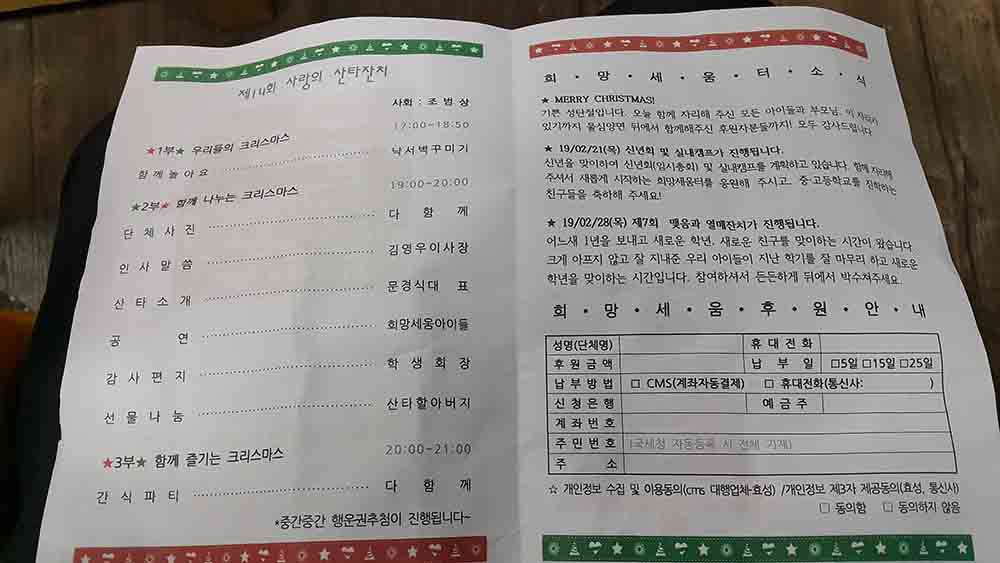 제14회 사랑의 산타잔치
사회 : 조병상
★1부★ 우리들의 크리스마스 17:00-18:50
함께놀아요 낙서벽꾸미기
★2부★ 함께 나누는 크리스마스 19:00-20:00
단체사진 다 함 께
인사말씀 김영우이사장
산타소개 문경식대 표
공 연 희망세움아이들
감사편지 학생회장
선물나눔 산타할아버지
★3부★ 함께 즐기는 크리스마스 20:00-21:00
간식파티 다 함 께
*중간중간 행운권추첨이 진행됩니다~
희·망·세·움·터·소·식
★ MERRY CHRISTMAS!
기쁜 성탄절입니다. 오늘 함께 자리해 주신 모든 아이들과 부모님, 이 자리가
있기까지 물심양면 뒤에서 함께해주신 후원자분들까지! 모두 감사드립니다
★ 19/02/21(목) 신년회 및 실내캠프가 진행됩니다.
신년을 맞이하여 신년회(임시총회) 및 실내캠프를 계획하고 있습니다. 함께 자리해
주셔서 새롭게 시작하는 희망세움터를 응원해 주시고, 중·고등학교를 진학하는
친구들을 축하해 주세요!
★ 19/02/28(목) 제7회 맺음과 열매잔치가 진행됩니다.
어느새 1년을 보내고 새로운 학년, 새로운 친구를 맞이하는 시간이 왔습니다
크게 아프지 않고 잘 지내준 우리 아이들이 지난 학기를 잘 마무리 하고 새로운
학년을 맞이하는 시간입니다. 참여하셔서 든든하게 뒤에서 박수쳐주세요.
희·망·세·움·후·원·안·내
성명(단체명) 휴대전화
후원금액 납부일 □5일 □15일 □25일
납부방법 □ CMS(계좌자동결제) □ 휴대전화(통신사: )
신청은행 예금주
계좌번호
주민번호 (국세청 자동등록 시 전체 기재)
주 소
☆ 개인정보 수집 및 이용동의(cms 대행업체-효성) /개인정보 제3자 제공동의(효성, 통신사)
□ 동의함 □ 동의하지 않음